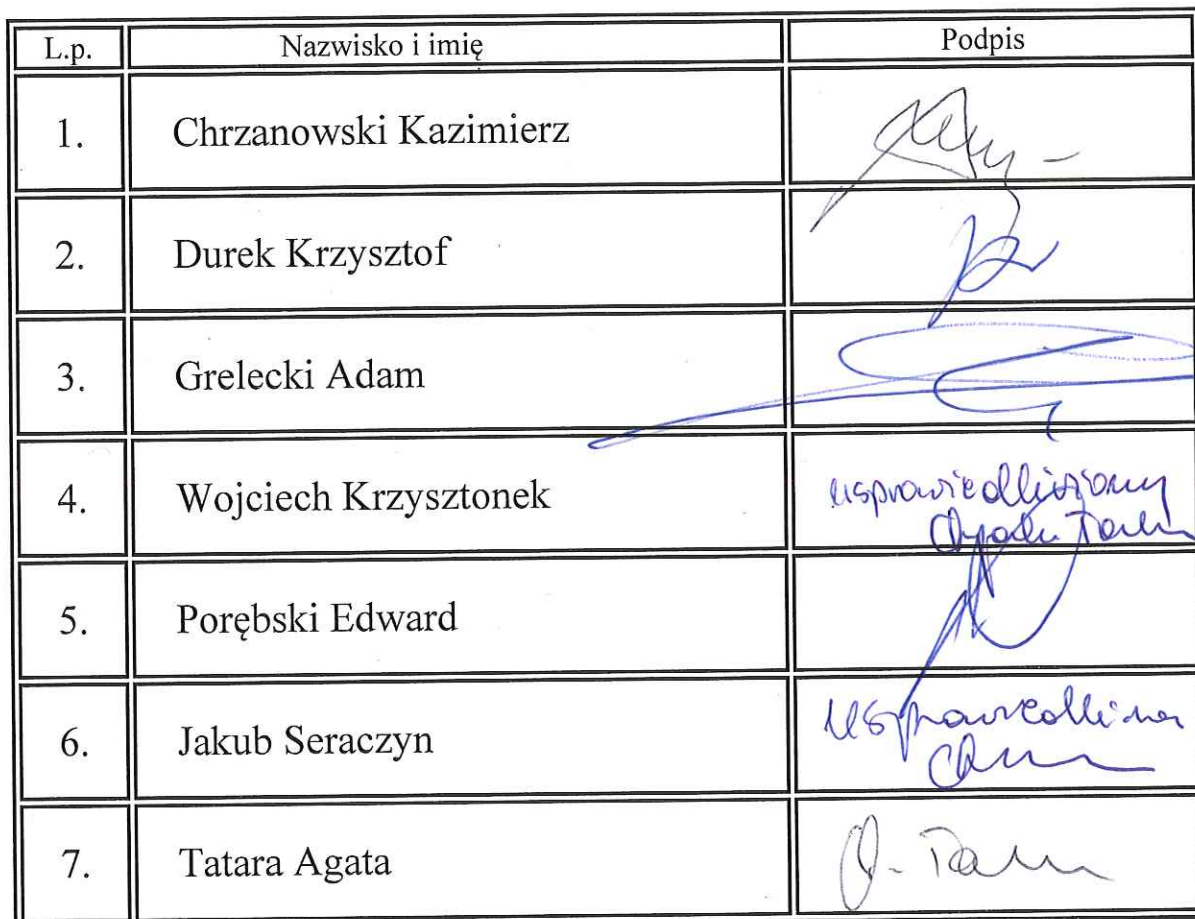 L.p. Nazwisko i imię Podpis
1. Chrzanowski Kazimierz
2. Durek Krzysztof
3. Grelecki Adam
4. Wojciech Krzysztonek usprawiedliwiony
5. Porębski Edward
6. Jakub Seraczyn
7. Tatara Agata